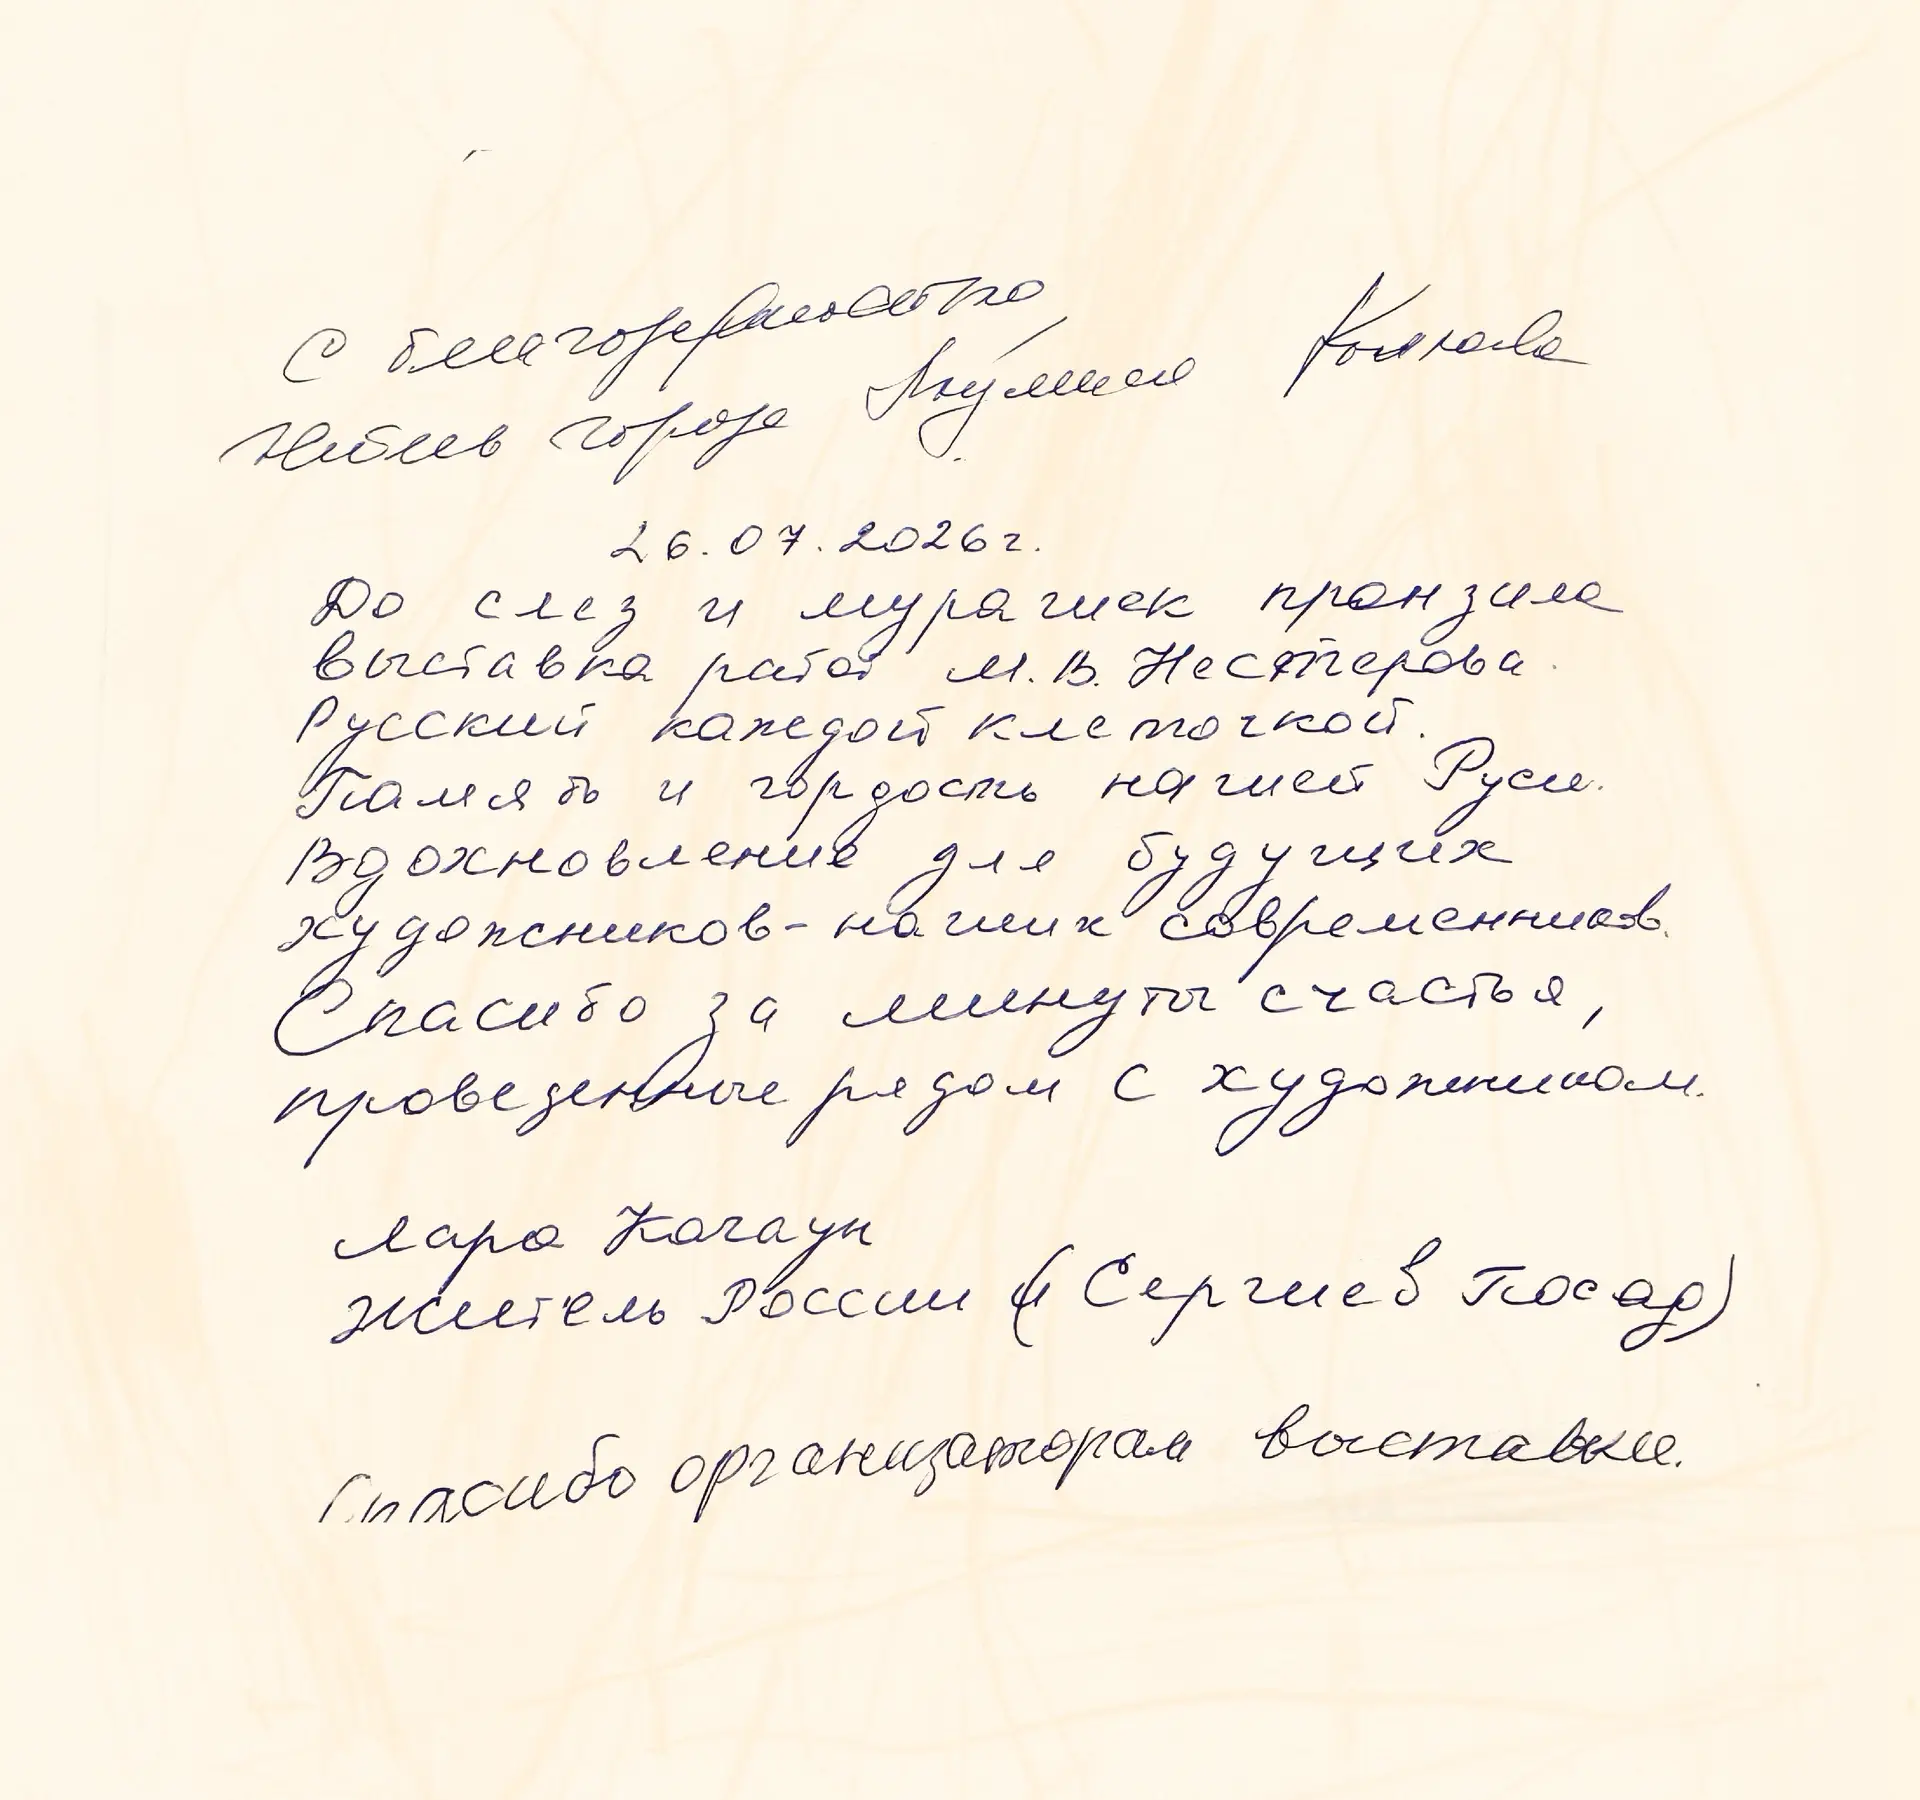 С благодарностью,
Житель города
26.07.2026г.
До слез и мурашек пронзила
выставка работ М.В. Нестерова.
Русский каждой клеточкой.
Память и гордость нашей Руси.
Вдохновление для будущих
художников - наших современников.
Спасибо за минуты счастья,
проведенные рядом с художником.
Лара Кочаун
Житель России (Сергиев Посад)
Спасибо организаторам выставки.